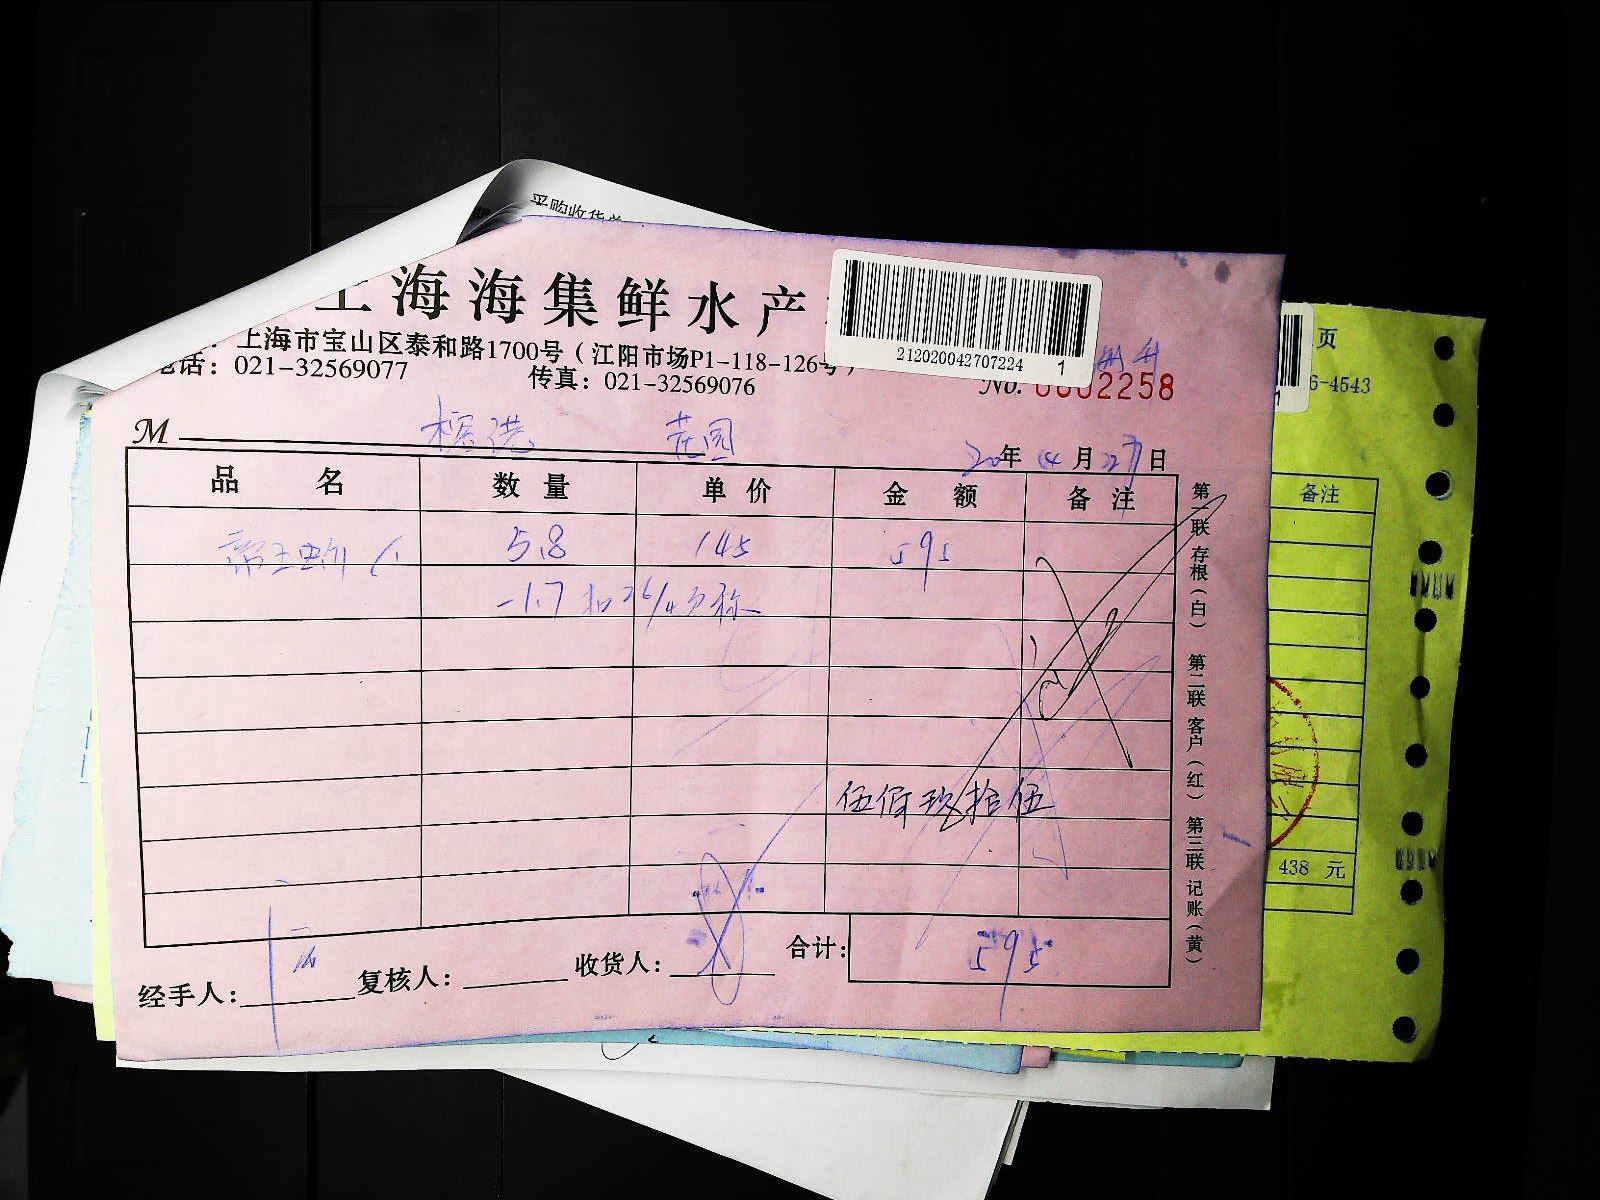 采购收货单
上海海集鲜水产
上海市宝山区泰和路1700号（江阳市场P1-118-126号）
电话：021-32569077 传真：021-32569076
212020042707224 1
No. 0002258
页
6-4543
M 花园
20年 04月 27日
品 名 数 量 单 价 金 额 备 注
帝王蟹 5.8 145 595
-1.7 扣26/4
伍佰玖拾伍
合计： 595
经手人： 复核人： 收货人：
第一联 存根（白） 第二联 客户（红） 第三联 记账（黄）
备注
438 元